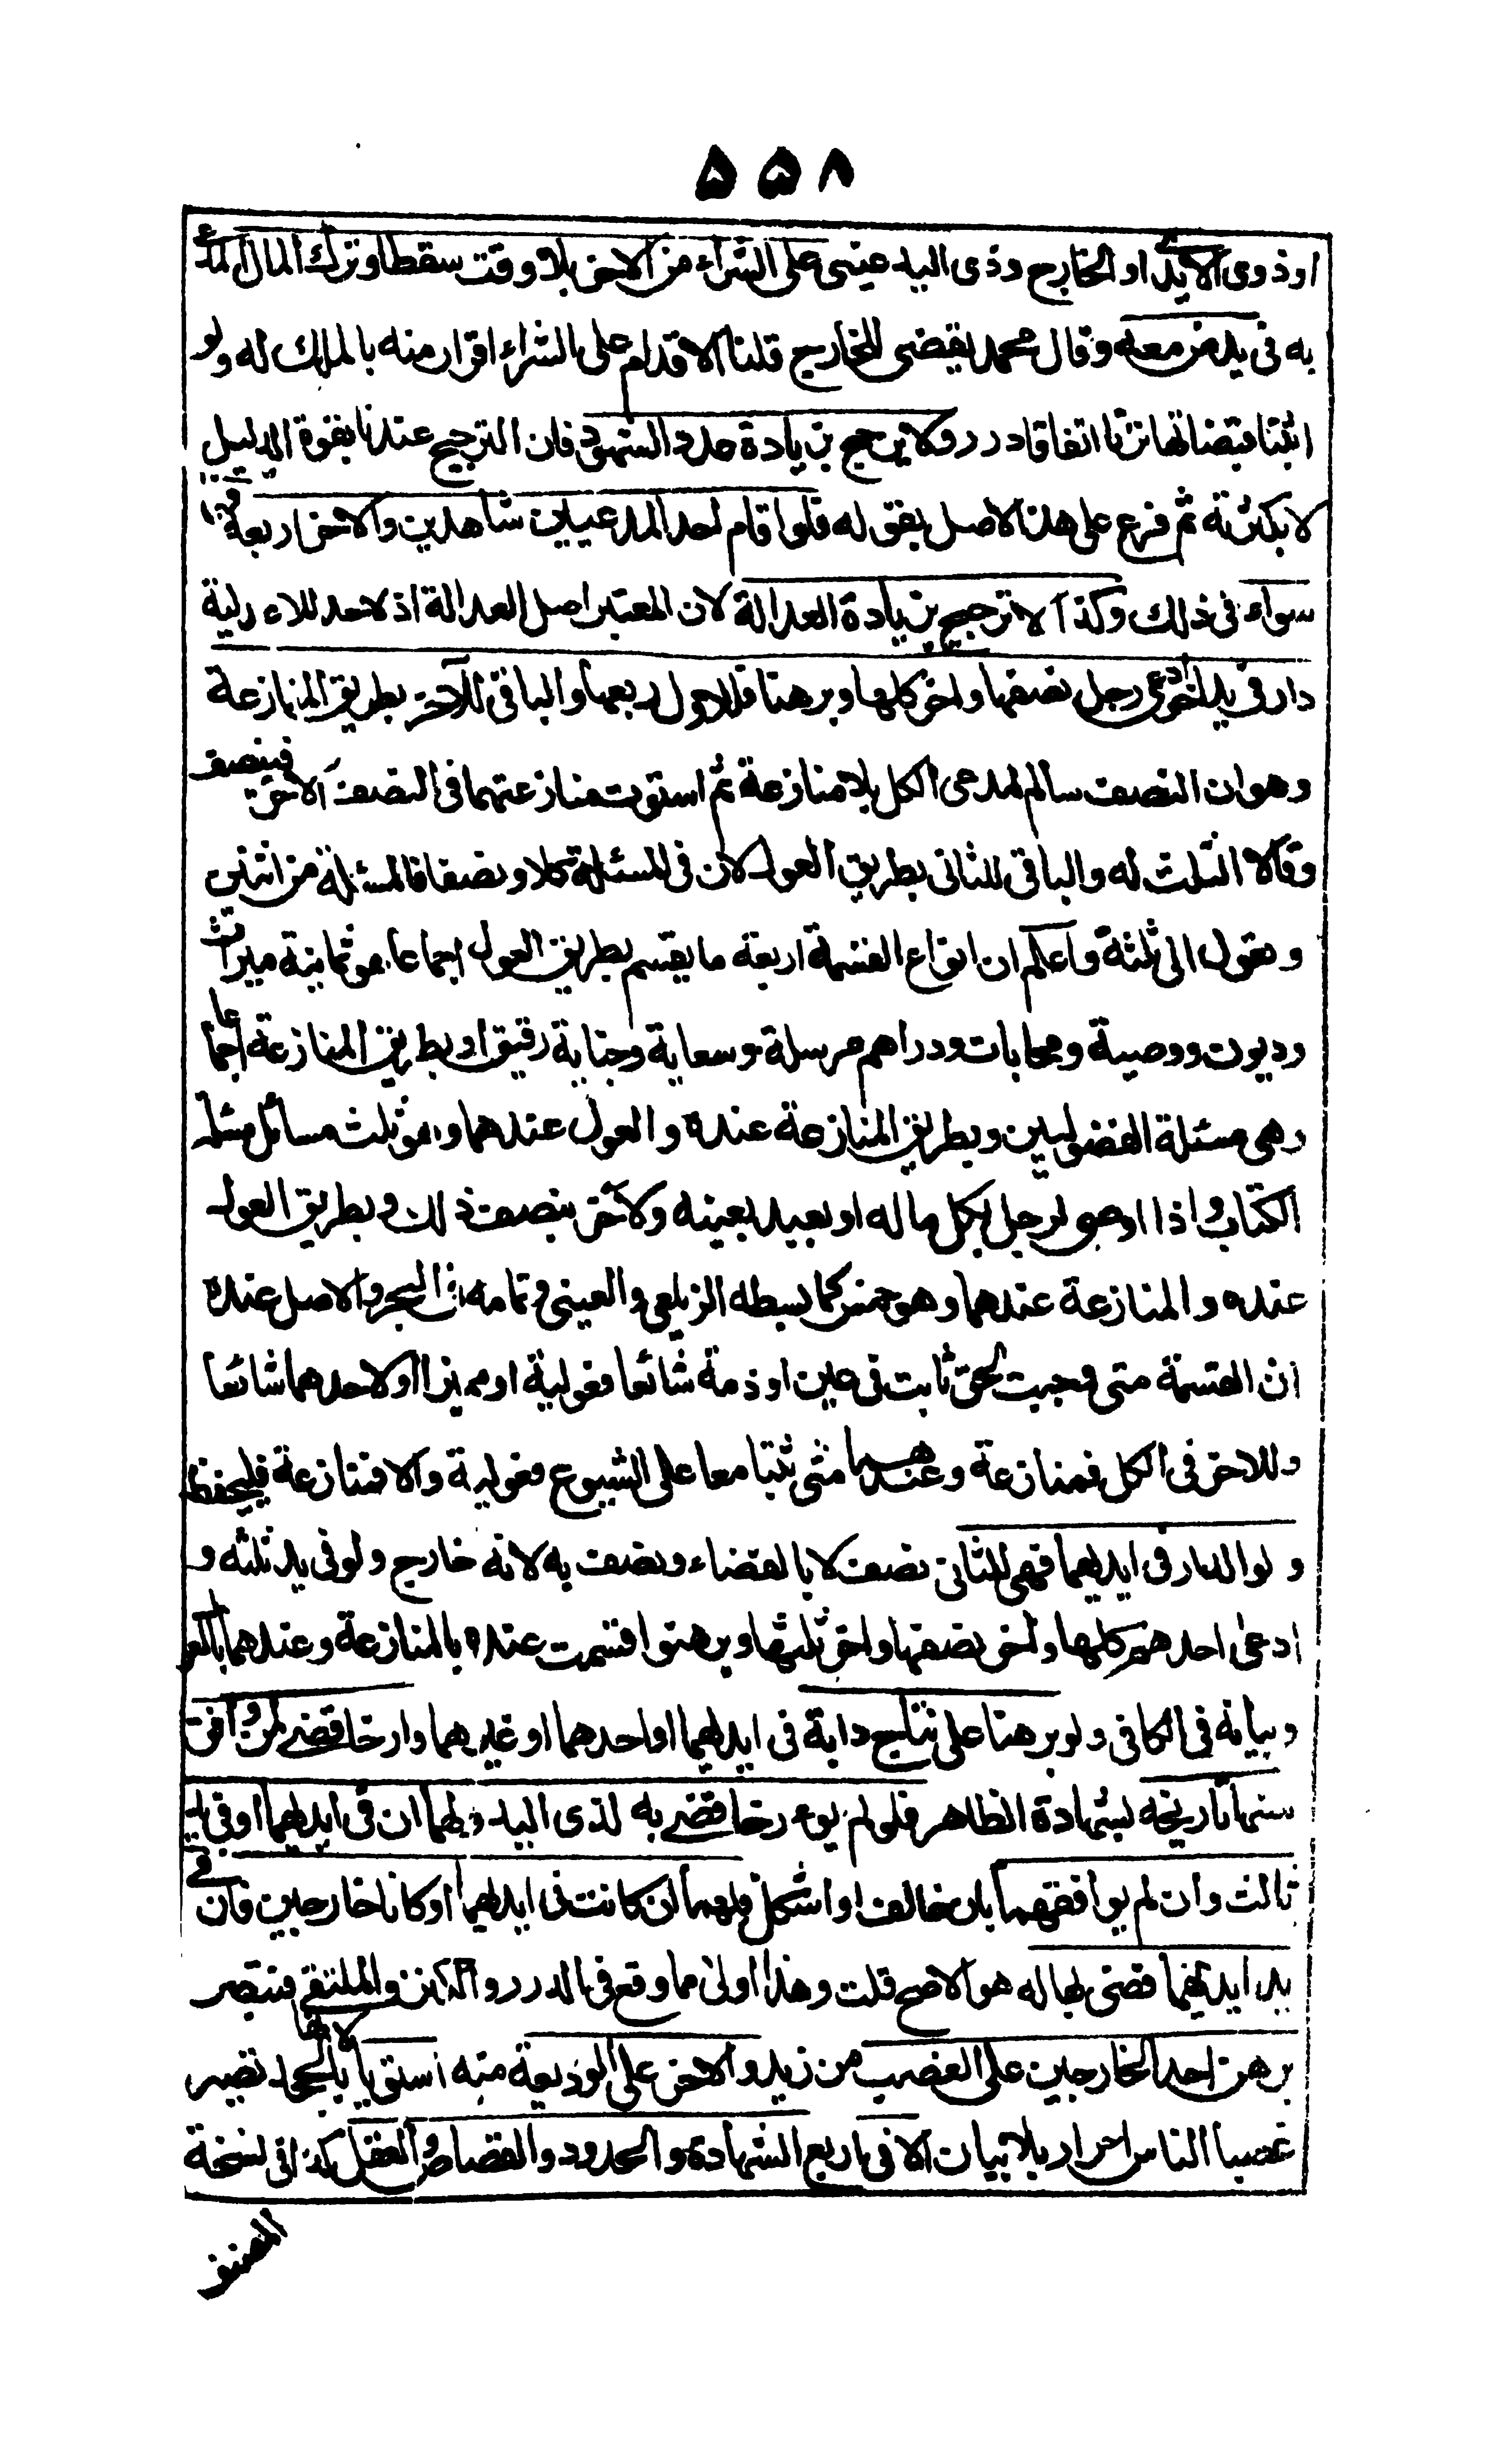 ۵۵۸
او ذوى الايد او الخارج و ذى اليد عينى على الشراء من الاخر بلا وقت سقطا و ترك المال المدعى
به فى يد من معه و قال محمد يقضى للخارج قلنا الاقدام على الشراء اقرار منه بالملك له ولو
اثبتا قبضا تهاترتا اتفاقا درر ولا يرجح بزيادة عدد الشهود فان الترجيح عندنا بقوة الدليل
لا بكثرته ثم فرع على هذا الاصل بقوله فلو اقام احد المدعيين شاهدين والاخر اربعة فهما
سواء فى ذلك وكذا لا ترجيح بزيادة العدالة لان المعتبر اصل العدالة اذ لا حد للاعدلية
دار فى يد اخر ادعى رجل نصفها واخر كلها وبرهنا فللاول ربعها والباقى للآخر بطريق المنازعة
وهو ان النصف سالم لمدعى الكل بلا منازعة ثم استوت منازعتهما فى النصف الاخر فينصف
وقالا الثلث له والباقى للثانى بطريق العول لان فى المسئلة كلا ونصفا فالمسئلة من اثنين
وتعول الى ثلثة واعلم ان انواع القسمة اربعة ما يقسم بطريق العول اجماعا وهو ثمانية ميراث
وديون ووصية ومحابات ودراهم مرسلة وسعاية وجناية رقيق او بطريق المنازعة اجماعا
وهى مسئلة الفضوليين وبطريق المنازعة عنده والعول عندهما وهو ثلث مسائل مسئلة
الكتاب واذا اوصى لرجل بكل ماله او بعبد بعينه ولآخر بنصف ذلك وبطريق العول
عنده والمنازعة عندهما وهو خمس كما بسطه الزيلعى والعينى وتمامه فى البحر والاصل عنده
ان القسمة متى وجبت لحق ثابت فى عين او ذمة شائعا فعولية او مميزا او لاحدهما شائعا
وللاخر فى الكل فمنازعة وعندهما متى ثبتا معا على الشيوع فعولية والا فمنازعة فليحفظ
ولو الدار فى ايديهما فهى للثانى نصف لا بالقضاء ونصف به لانه خارج ولو فى يد ثلثة و
ادعى احدهم كلها واخر نصفها واخر ثلثها وبرهنوا قسمت عنده بالمنازعة وعندهما بالعول
وبيانه فى الكافى ولو برهنا على نتاج دابة فى ايديهما او احدهما او غيرهما وارخا قضى لمن وافق
سنها تاريخه بشهادة الظاهر فلو لم يورخا قضى به لذى اليد ولهما ان فى ايديهما او فى يد
ثالث وان لم يوافقهما بان خالف او اشكل فلهما ان كانت فى ايديهما او كانا خارجين فان فى
يد احدهما قضى بها له هو الاصح قلت وهذا اولى مما وقع فى الدرر والكنز والملتقى فتبصر
برهن احد الخارجين على الغصب من زيد والاخر على الوديعة منه استويا لانها بالجحد تصير
غصبا الناس احرار بلا بيان الا فى اربع الشهادة والحدود والقصاص والعقل كذا فى نسخة
المصنف